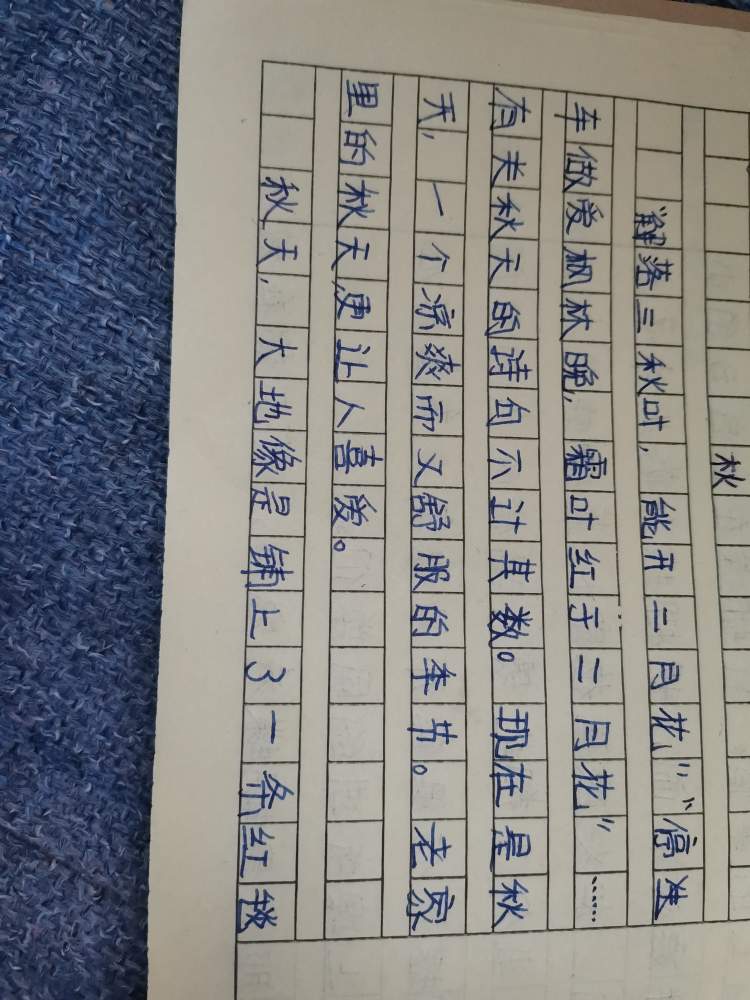 秋
“解落三秋叶，能开二月花，”“停
车做爱枫林晚，霜叶红于二月花”……
有关秋天的诗句不计其数。现在是秋
天，一个凉爽而又舒服的季节。老家
里的秋天更让人喜爱。
秋天，大地像是铺上了一条红毯